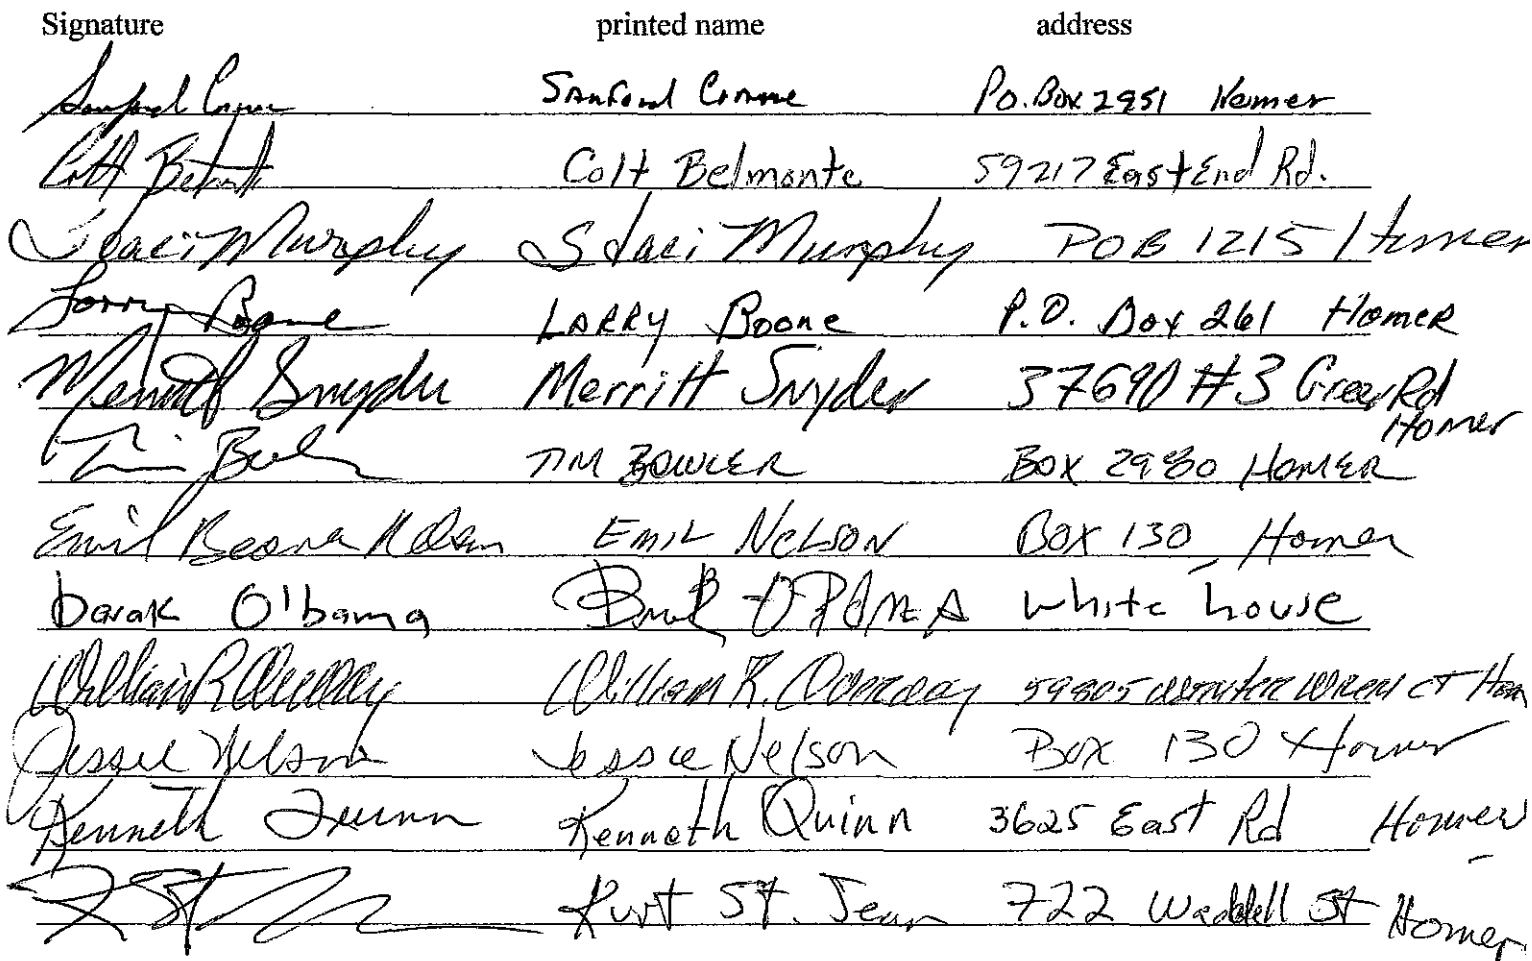 Signature printed name address
Sanford Sanford P.O. Box 2951 Homer
Colt Belmonte Colt Belmonte 59217 East End Rd.
Staci Murphy Staci Murphy POB 1215 Homer
Larry Boone LARRY Boone P.O. Box 261 Homer
Merritt Snyder Merritt Snyder 37690 #3 Greer Rd Homer
Tim TIM BOWLER BOX 2980 HOMER
Emil Nelson EMIL NELSON BOX 130, Homer
barak O'bama OBAMA white house
William R William R. 59805 WINTER WREN CT Hom
Jessie Nelson Jessie Nelson Box 130 Homer
Kenneth Quinn Kenneth Quinn 3625 East Rd Homer
Kurt St. Jean 722 Waddell St Homer